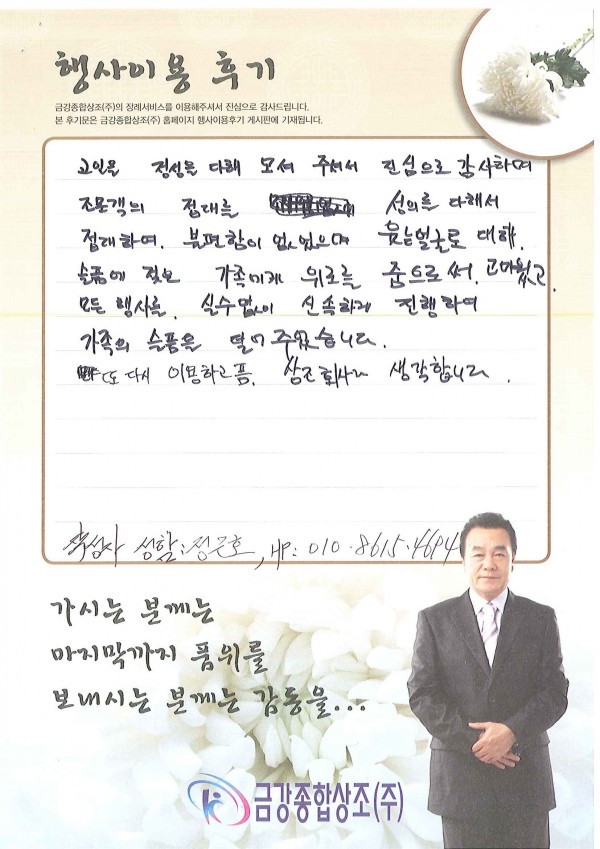 행사이용 후기
금강종합상조(주)의 장례서비스를 이용해주셔서 진심으로 감사드립니다.
본 후기문은 금강종합상조(주) 홈페이지 행사이용후기 게시판에 기재됩니다.
고인을 정성을 다해 모셔 주셔서 진심으로 감사하며
조문객의 접대를 성의를 다해서
접대하며. 불편함이 없었으며 웃는얼굴로 대해.
슬픔에 젖은 가족에게 위로를 줌으로써. 고마웠고.
모든 행사를. 실수없이 신속하게 진행하여
가족의 슬픔을 덜어 주었습니다.
또 다시 이용하고픔. 상조회사라 생각합니다.
작성자 성함: 정근호, HP: 010·8615·4694
가시는 분께는
마지막까지 품위를
보내시는 분께는 감동을...
금강종합상조(주)